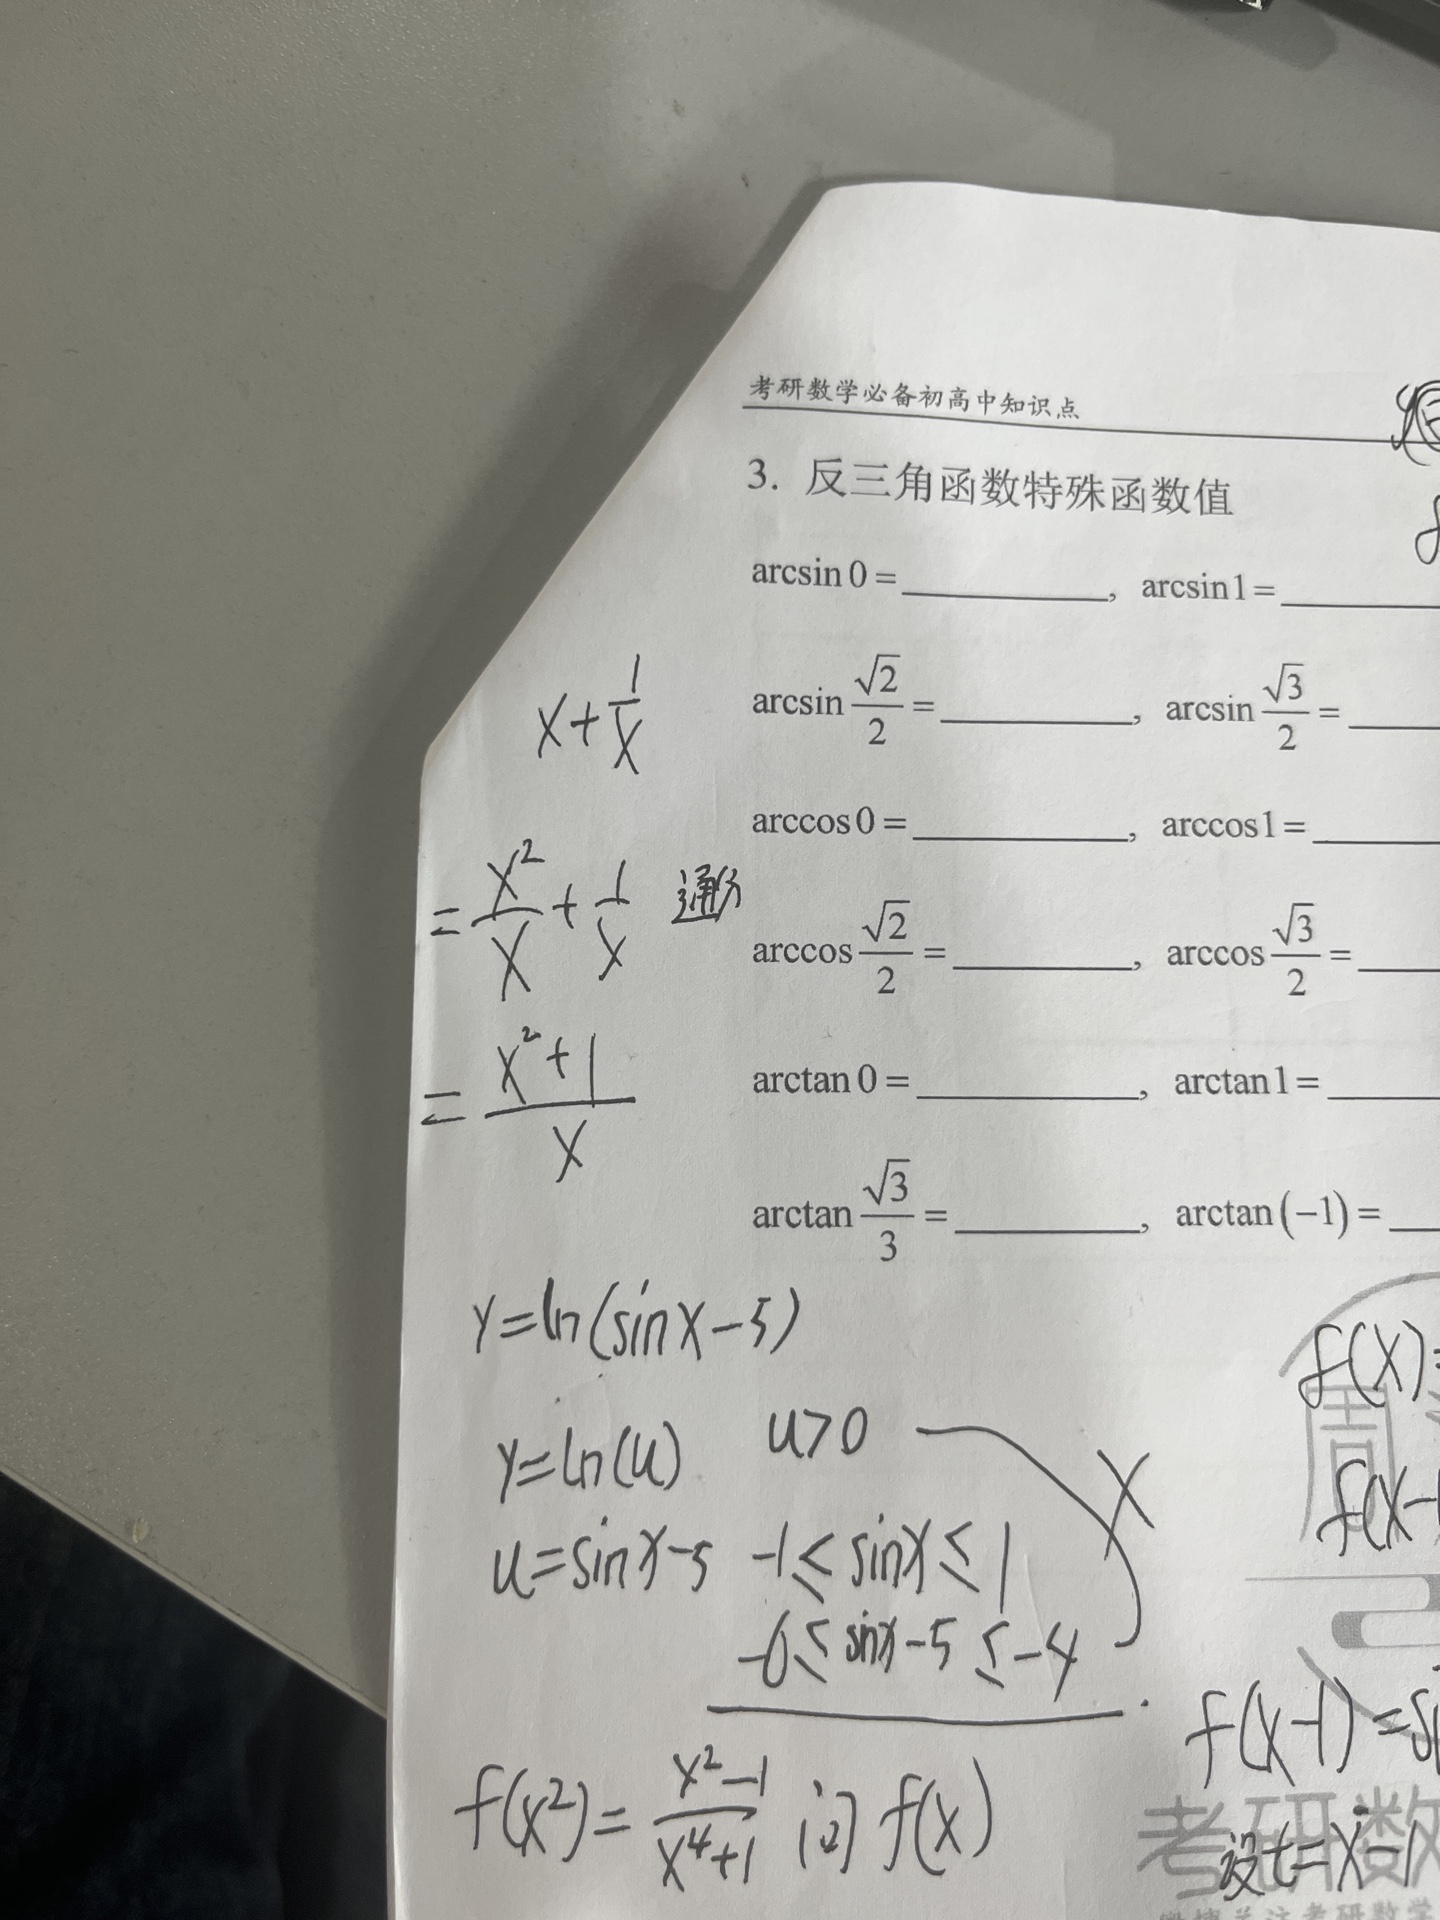 考研数学必备初高中知识点
3. 反三角函数特殊函数值
arcsin 0 = ______, arcsin 1 = ______
arcsin √2/2 = ______, arcsin √3/2 = ______
arccos 0 = ______, arccos 1 = ______
arccos √2/2 = ______, arccos √3/2 = ______
arctan 0 = ______, arctan 1 = ______
arctan √3/3 = ______, arctan (−1) = ______
x + 1/x
= x²/x + 1/x 通分
= (x²+1)/x
y=ln(sinx−5)
y=ln(u) u>0
u=sinx−5 −1≤sinx≤1
−6≤sinx−5≤−4
f(x²)= (x²−1)/(x⁴+1) 问 f(x)
f(x)=
f(x−
f(x−1)=s
设t=x−1
周
考研数